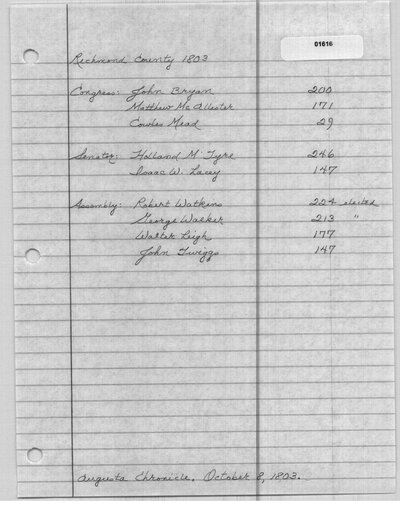 01616
Richmond County 1803
Congress: John Bryan 200
Matthew McAllester 171
Cowles Mead 29
Senator: Holland M'Tyre 246
Isaac W. Lacey 147
Assembly: Robert Watkins 224 elected
George Walker 213 "
Walter Leigh 177
John Twiggs 147
Augusta Chronicle. October 8, 1803.